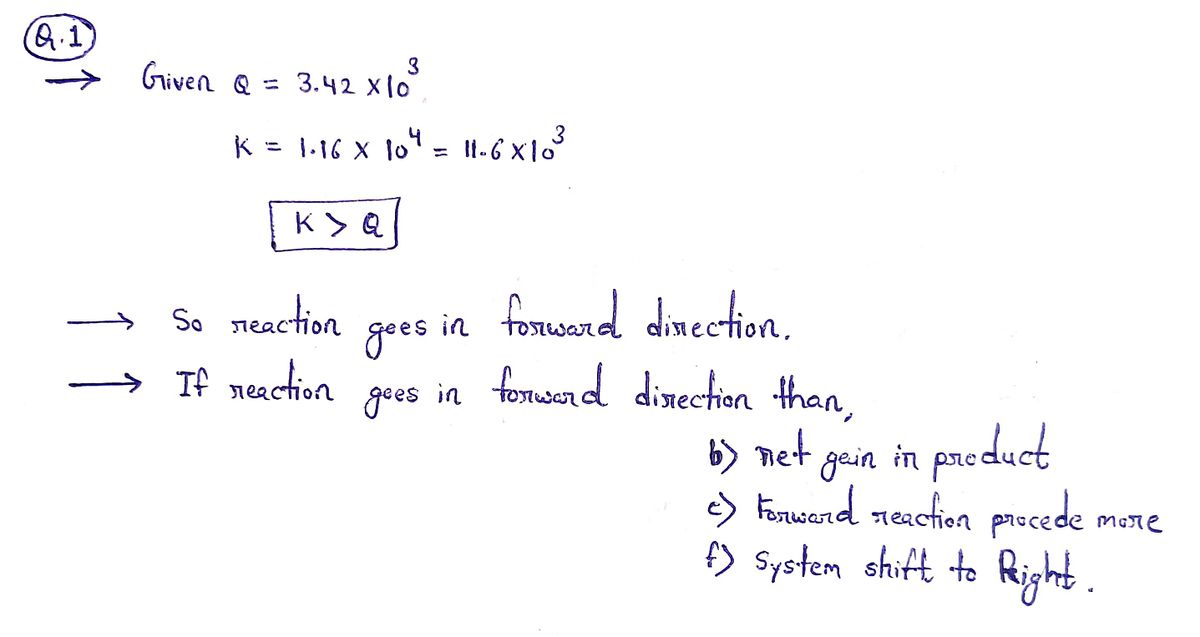 Q.1
→ Given Q = 3.42 x10³
K = 1.16 x 10⁴ = 11.6 x10³
K > Q
→ So reaction goes in forward direction.
→ If reaction goes in forward direction than,
b) net gain in product
c) Forward reaction procede more
f) System shift to Right.